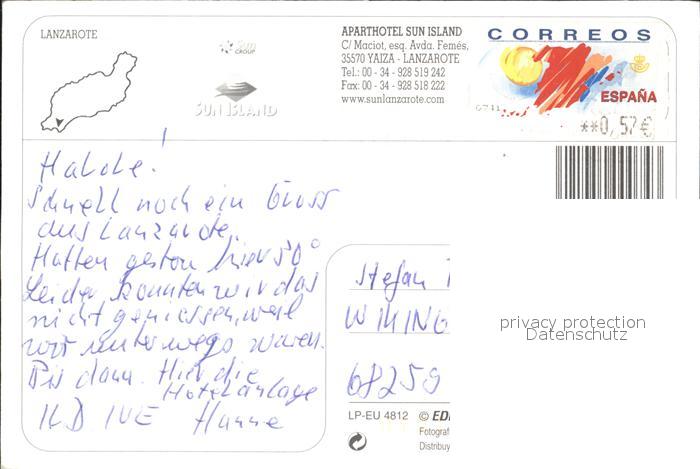 LANZAROTE
Sun
GROUP
SUN ISLAND
APARTHOTEL SUN ISLAND
C/ Maciot, esq. Avda. Femés,
35570 YAIZA - LANZAROTE
Tel.: 00 - 34 - 928 519 242
Fax: 00 - 34 - 928 518 222
www.sunlanzarote.com
CORREOS
ESPAÑA
0741
**0,57€
Schnell noch ein Gruss
aus Lanzarote.
Hatten gestern hier 50°
Leider konnten wir das
nicht geniessen, weil
wir unterwegs waren.
Bis dann. Hier die
Hotelanlage
Hanne
Stefan
WIKING
68259
LP-EU 4812 © EDI
Fotograf
Distribuy
privacy protection
Datenschutz